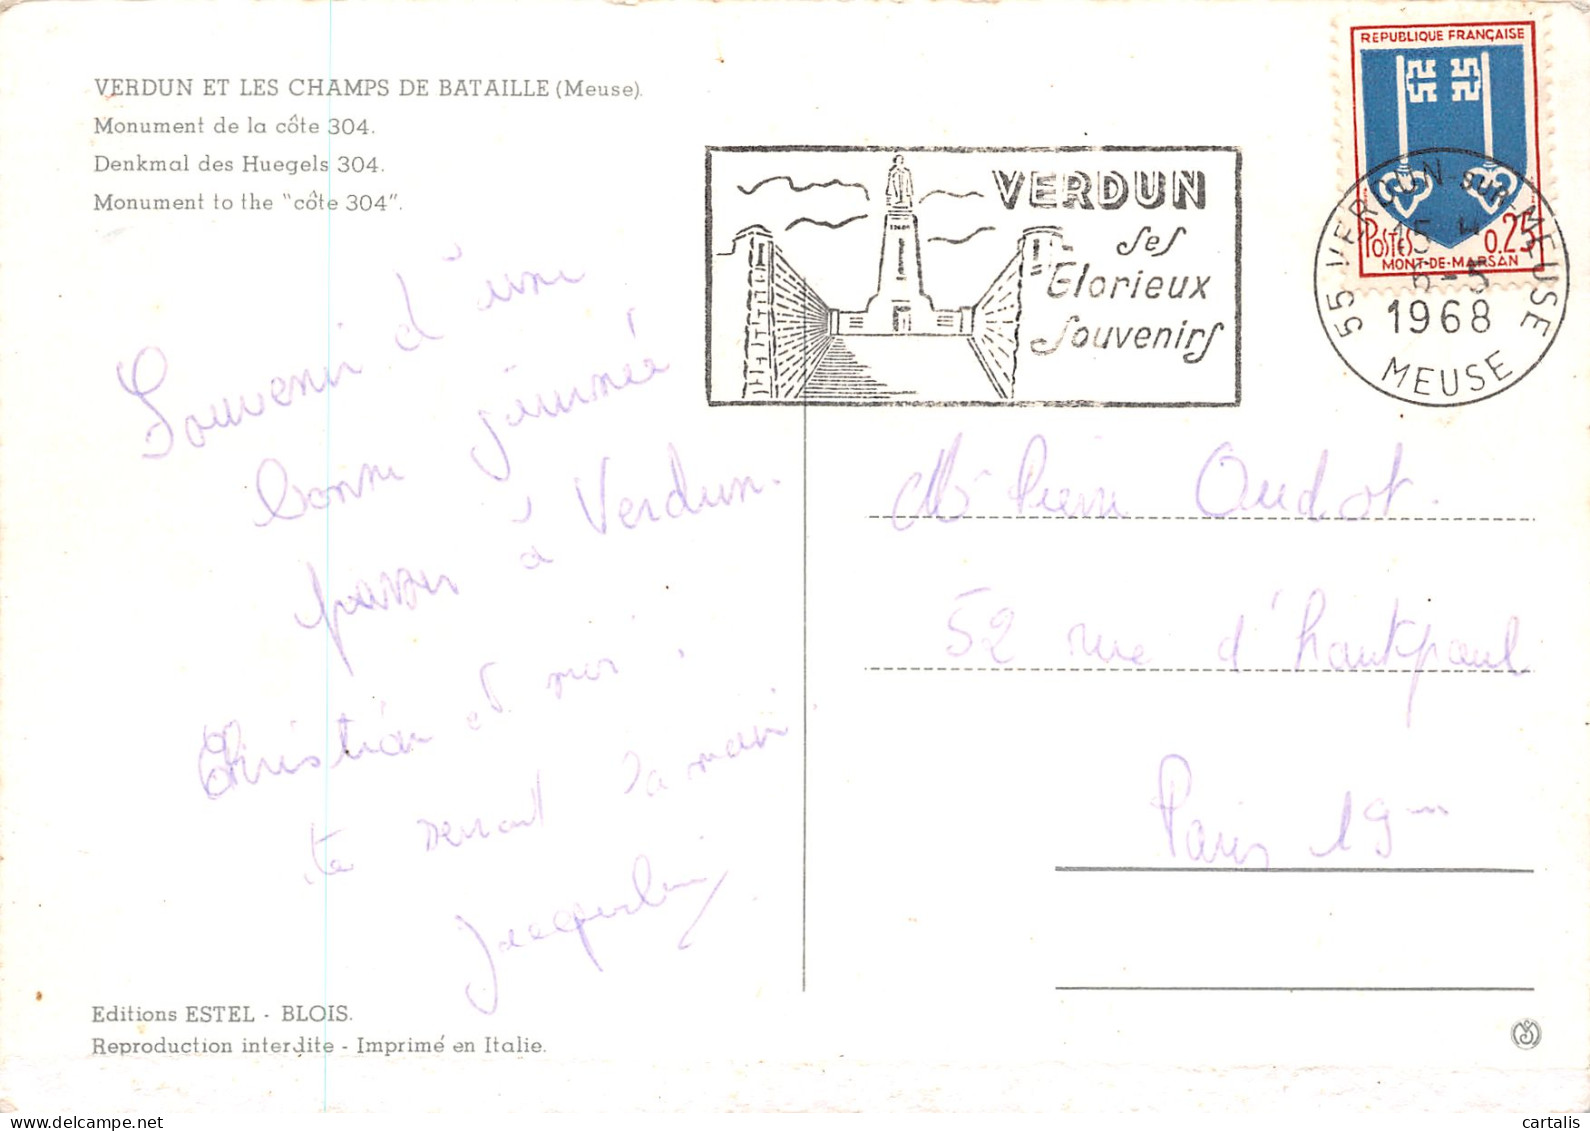 VERDUN ET LES CHAMPS DE BATAILLE (Meuse).
Monument de la côte 304.
Denkmal des Huegels 304.
Monument to the "côte 304".
Souvenir d'une
bonne journée
passée à Verdun.
Christian et moi
te serrent la main
Jacqueline
Editions ESTEL - BLOIS.
Reproduction interdite - Imprimé en Italie.
VERDUN
ses
Glorieux
Souvenirs
REPUBLIQUE FRANÇAISE
POSTES 0.25
MONT-DE-MARSAN
55 VERDUN-SUR-MEUSE
15 H
5-5
1968
MEUSE
Mr Pierre Oudot.
52 rue d'hautpoul
Paris 19em
cartalis.com